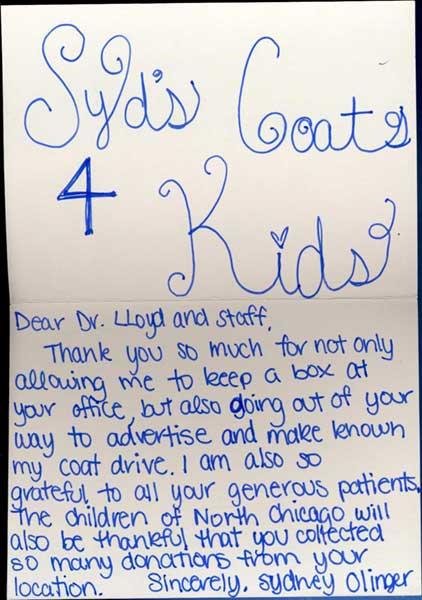 Syd's Coats
4
Kids
Dear Dr. Lloyd and staff,
Thank you so much for not only
allowing me to keep a box at
your office, but also going out of your
way to advertise and make known
my coat drive. I am also so
grateful to all your generous patients.
The children of North Chicago will
also be thankful that you collected
so many donations from your
location. Sincerely, Sydney Olinger